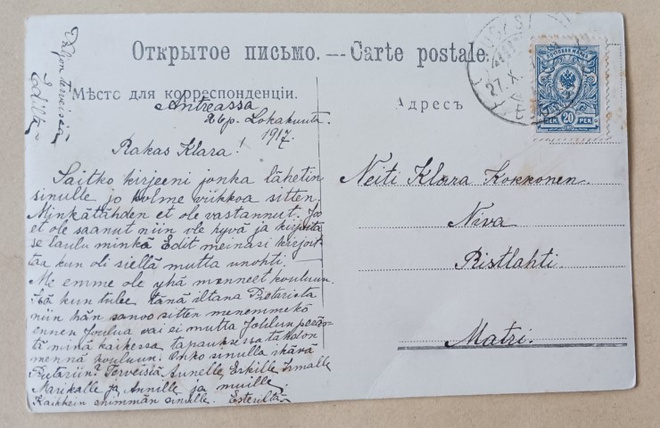 Открытое письмо. — Carte postale.
Мѣсто для корреспонденціи.
Адресъ
PEN. 20 PEN.
27.X.
Antreassa
26 p. Lokakuuta
1917
Rakas Klara!
Saitko kirjeeni jonka lähetin
sinulle jo kolme viikkoa sitten.
Minkätähden et ole vastannut. Jos
et ole saanut niin ole hyvä ja kirjoita
se laulu minkä Edit meinasi kirjoit-
taa kun oli siellä mutta unohti.
Me emme ole yhä menneet kouluun.
Isä kun tulee tänä iltana Pietarista
niin hän sanoo sitten menemmekö
ennen Joulua vai ei mutta Joulun perästä
minä kaikessa tapauksessa tahdon
mennä kouluun. Onko sinulla ikävä
Pietariin? Terveisiä Annelle Erkille Irmalle
Marikalle ja Annille ja muille
Kaikkein enimmän sinulle. Esteriltä
Paljon terveisiä
Neiti Klara Kokkonen.
Niva
Ristlahti.
Matri.